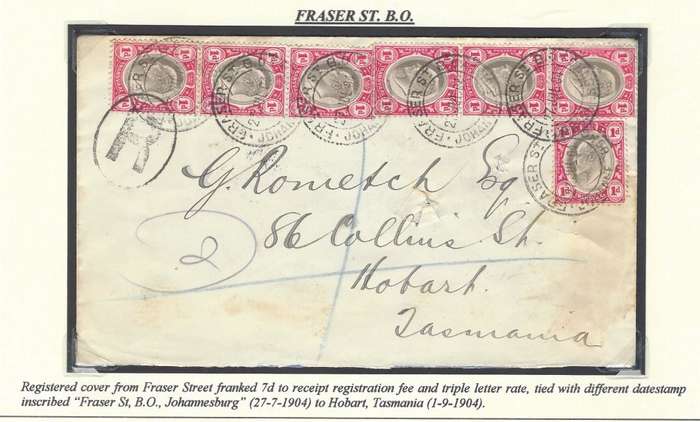 FRASER ST. B.O.
R
G. Rometsch Esq.
2
86 Collins St.
Hobart.
Tasmania
Registered cover from Fraser Street franked 7d to receipt registration fee and triple letter rate, tied with different datestamp
inscribed "Fraser St, B.O., Johannesburg" (27-7-1904) to Hobart, Tasmania (1-9-1904).